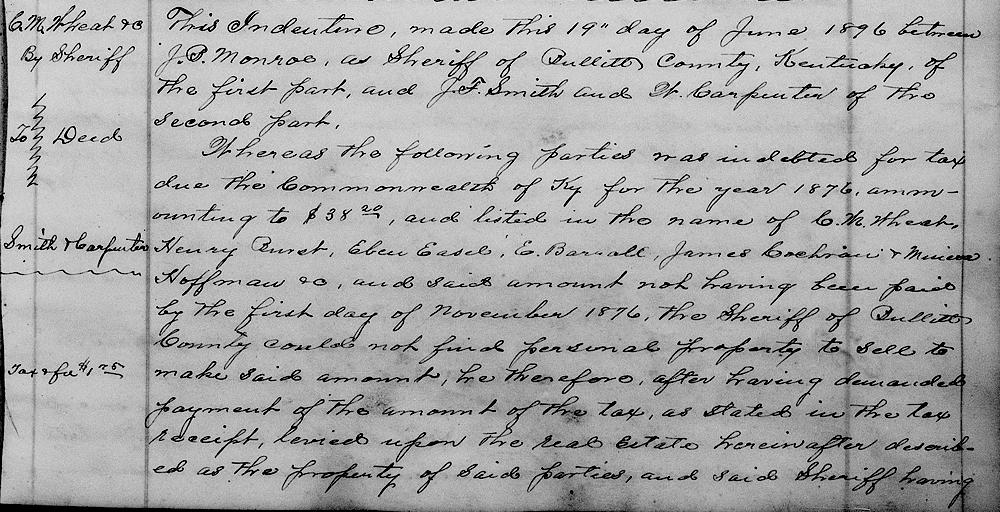 C.M. Wheat &c
By Sheriff
To Deed
Smith & Carpenter
Tax & fee $1.75
This Indenture, made this 19" day of June 1896 between
J.P. Monroe, as Sheriff of Bullitt County, Kentucky, of
the first part, and J.F. Smith and W. Carpenter of the
second part.
Whereas the following parties was indebted for tax
due the Commonwealth of Ky for the year 1876, amm-
ounting to $38 20, and listed in the name of C.M. Wheat,
Henry Burst, Eben Easel, E. Barrall, James Cochran &
Hoffman &c, and said amount not having been paid
by the first day of November 1876, the Sheriff of Bullitt
County could not find personal property to sell to
make said amount, he therefore, after having demanded
payment of the amount of the tax, as stated in the tax
receipt, levied upon the real estate hereinafter describ-
ed as the property of said parties, and said Sheriff having